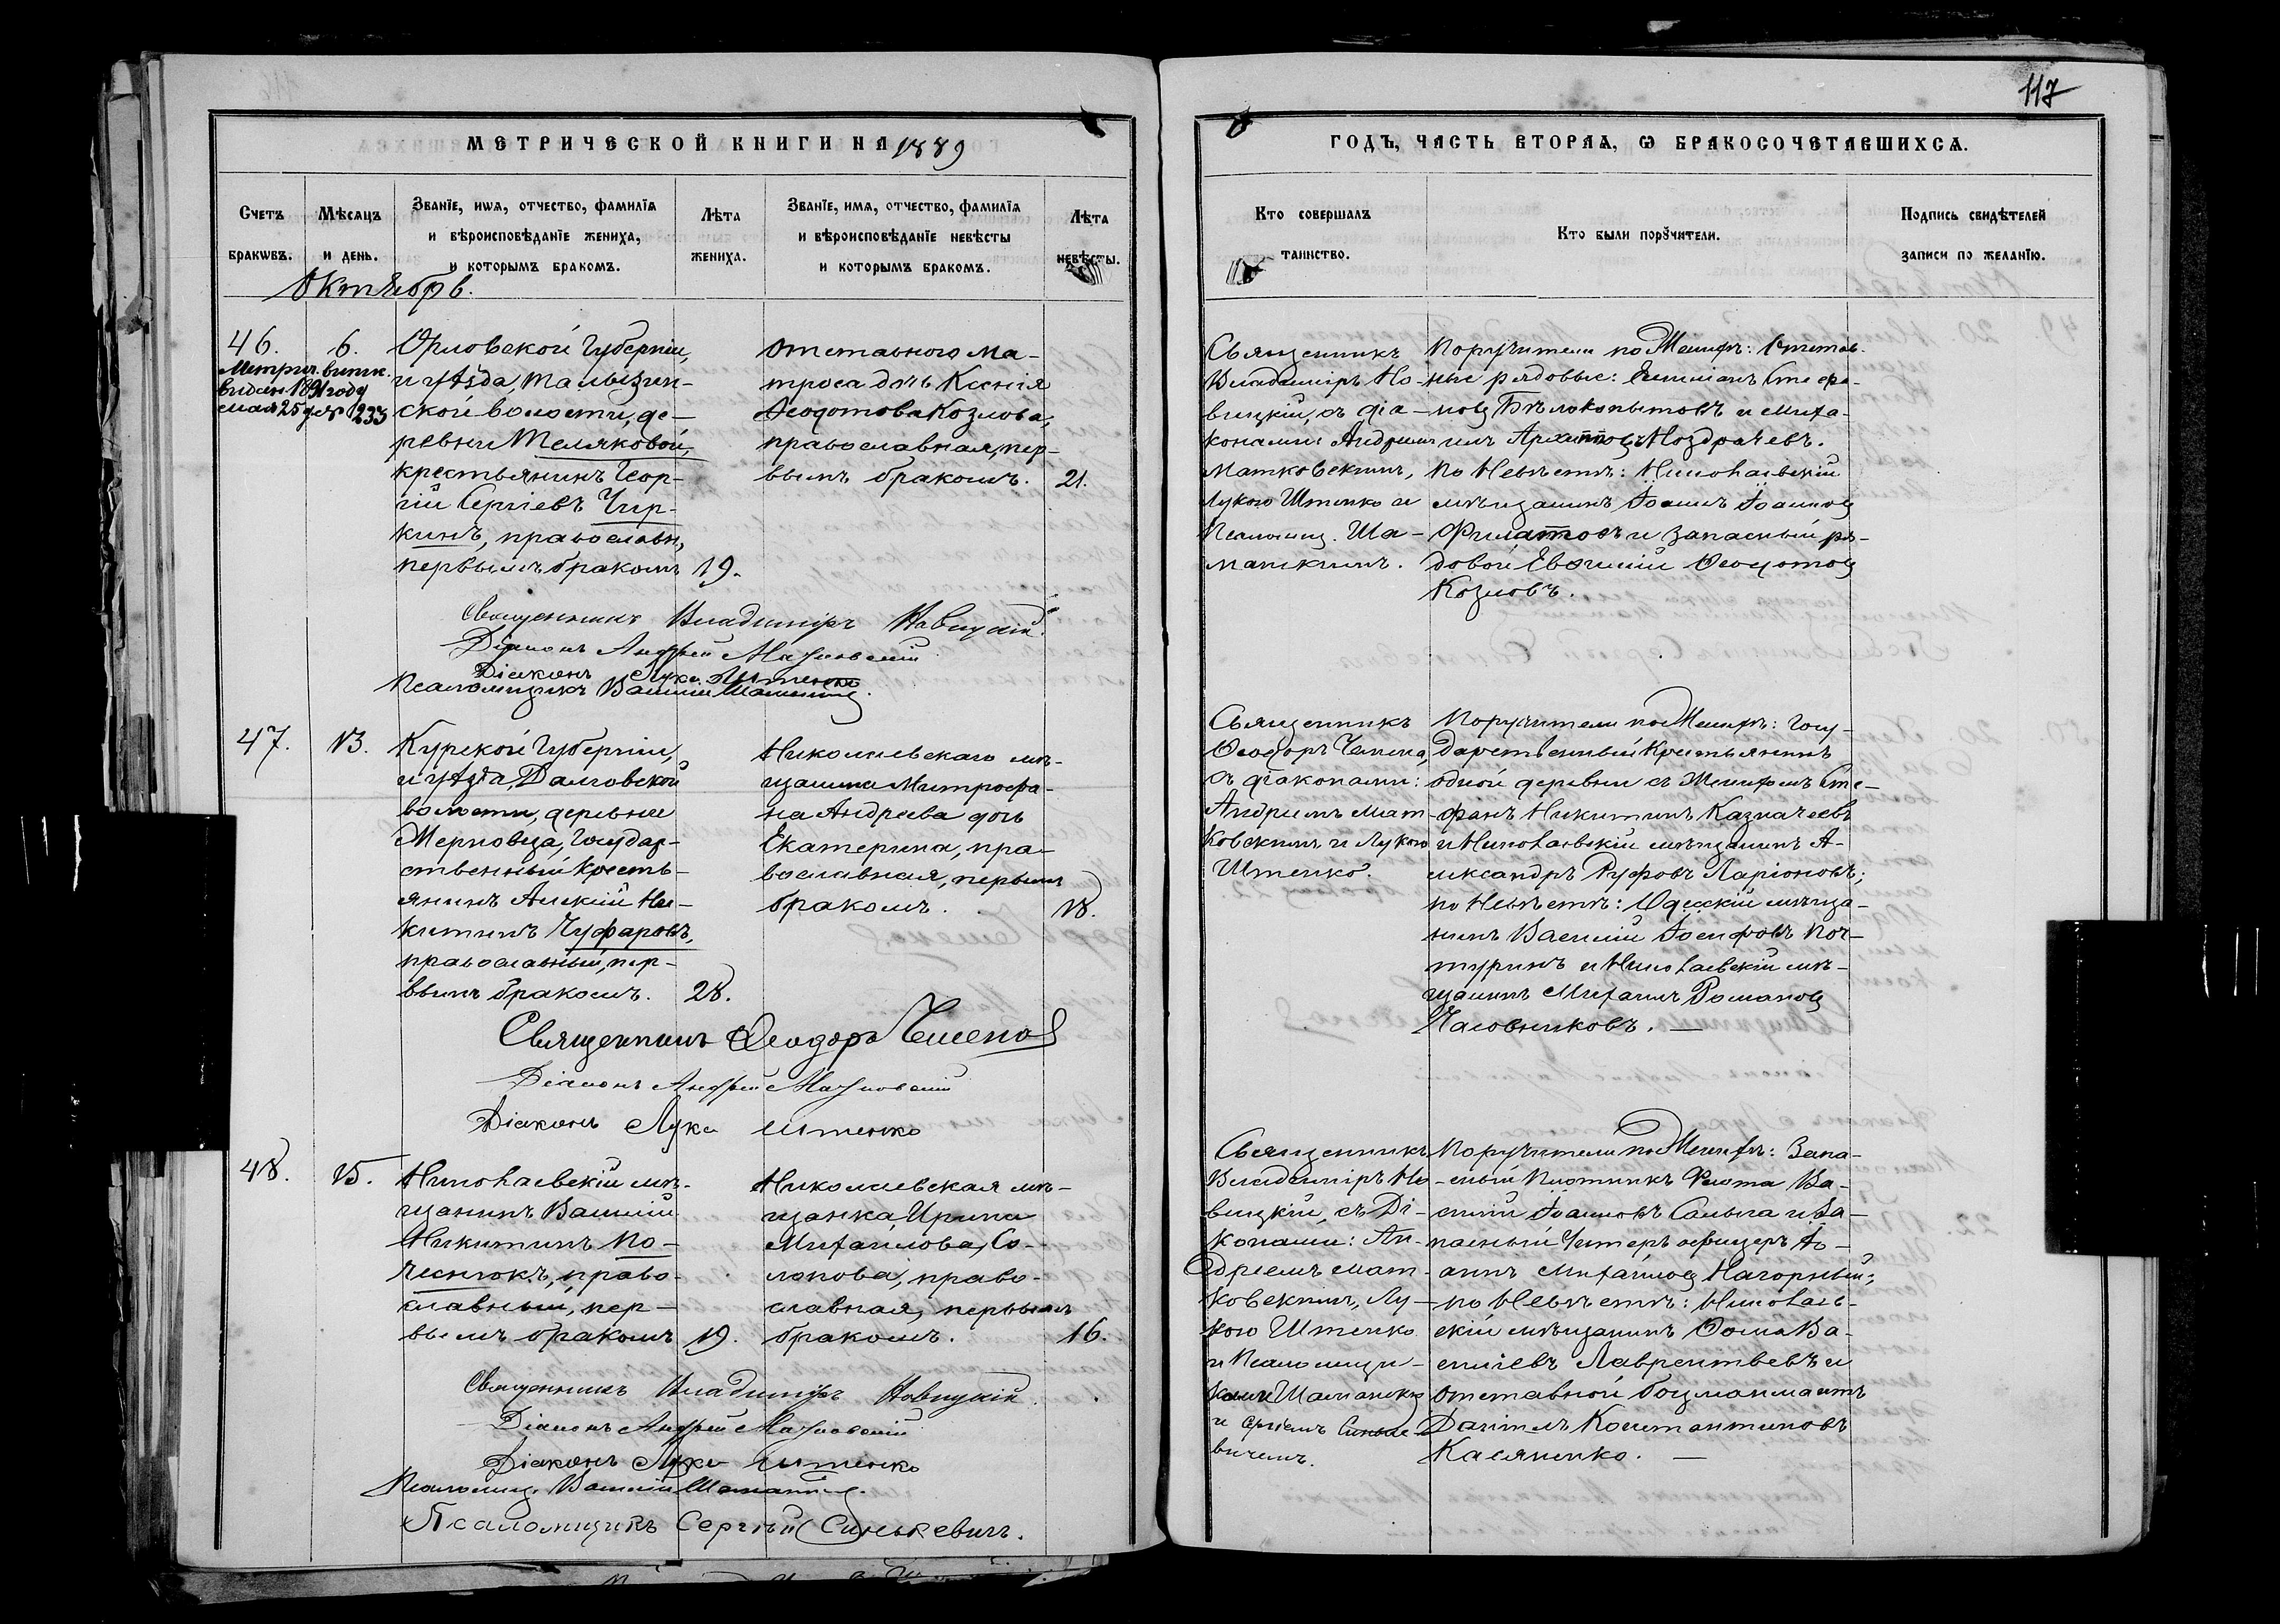 117
МЕТРИЧЕСКОЙ КНИГИ НА 1889
ГОДЪ, ЧАСТЬ ВТОРАѦ, Ѡ БРАКОСОЧЕТАВШИХСѦ.
Счетъ
бракѡвъ.
Мѣсяцъ
и день.
Званїе, имя, отчество, фамилїя
и вѣроисповѣданїе жениха,
и которымъ бракомъ.
Лѣта
жениха.
Званїе, имя, отчество, фамилїя
и вѣроисповѣданїе невѣсты
и которымъ бракомъ.
Лѣта
невѣсты.
Кто совершалъ
таинство.
Кто были порꙋчители.
Подпись свидѣтелей
записи по желанїю.
Октябрь.
46.
Метрич. выпис.
выдан 1891 году
мая 25 дня № 233
6.
Орловской Губерніи,
и уѣзда, 
ской волости, де-
ревни Теляковой,
крестьянинъ Геор-
гій Сергіевъ Чир-
кинъ, православн,
первымъ бракомъ
19.
Отставного Ма-
троса дочь Ксенія
Ѳеодотова Козлова,
православная, пер-
вымъ бракомъ.
21.
Священникъ
Владиміръ Но-
вицкій, съ діа-
конами: Андреемъ
Матковскимъ,
Лукою Штенко и
Псаломщ. Ша-
маткинъ.
Поручители по Женихѣ: Отстав-
ные рядовые: Емиліанъ Стефа-
новъ Бѣлокопытовъ и Миха-
илъ Архиповъ Ноздрачевъ.
По Невѣстѣ: Николаевскій
мѣщанинъ Іоаннъ Іоанновъ
Филатовъ и запасный ря-
довой Евѳимій Ѳеодотовъ
Козловъ.
Священникъ Владиміръ Новицкій.
Діаконъ Андрей Матковскій
Діаконъ Лука Штенко
Псаломщикъ Василій
47.
13.
Курской Губерніи,
и уѣзда, Далговской
волости, деревни
Мерновца, Государ-
ственный кресть-
янинъ Алексій Ни-
китинъ Чуфаровъ,
православный, пер-
вымъ бракомъ.
28.
Николаевскаго мѣ-
щанина Митрофа-
на Андреева дочь
Екатерина, пра-
вославная, первымъ
бракомъ.
18.
Священникъ
Ѳеодоръ
съ діаконами:
Андреемъ Мат-
ковскимъ и Лукою
Штенко.
Поручители по Женихѣ: Госу-
дарственный крестьянинъ
одной деревни съ Женихомъ Сте-
фанъ Никитинъ Казначеевъ
и Николаевскій мѣщанинъ А-
лександръ Руфовъ Ларіоновъ;
по Невѣстѣ: Одесскій мѣща-
нинъ Василій Іосифовъ Поч-
туринъ и Николаевскій мѣ-
щанинъ Михаилъ Романовъ
Часовниковъ. —
Священникъ Ѳеодоръ
Діаконъ Андрей Матковскій
Діаконъ Лука Штенко
48.
15.
Николаевскій мѣ-
щанинъ Василій
Никитинъ По-
чеснюкъ, право-
славный, пер-
вымъ бракомъ
19.
Николаевская мѣ-
щанка, Ирина
Михаилова, Со-
лопова, право-
славная, первымъ
бракомъ.
16.
Священникъ
Владиміръ Но-
вицкій, съ Ді-
конами: Ан-
дреемъ Мат-
ковскимъ, Лу-
кою Штенко
и Псаломщи-
и Сергіемъ Синьке-
вичемъ.
Поручители по Женихѣ: Запа-
сный плотникъ Флота Ва-
силій Іоанновъ Салыга и За-
пасный Унтеръ офицеръ Іо-
аннъ Михаиловъ Нагорный;
по Невѣстѣ: Николаев-
скій мѣщанинъ Ѳома Ва-
силіевъ Лаврентьевъ и
отставной боцманматъ
Даніилъ Константиновъ
Касяненко. —
Священникъ Владиміръ Новицкій.
Діаконъ Андрей Матковскій
Діаконъ Лука Штенко
Псаломщ. Василій
Псаломщикъ Сергѣй Синькевичъ.